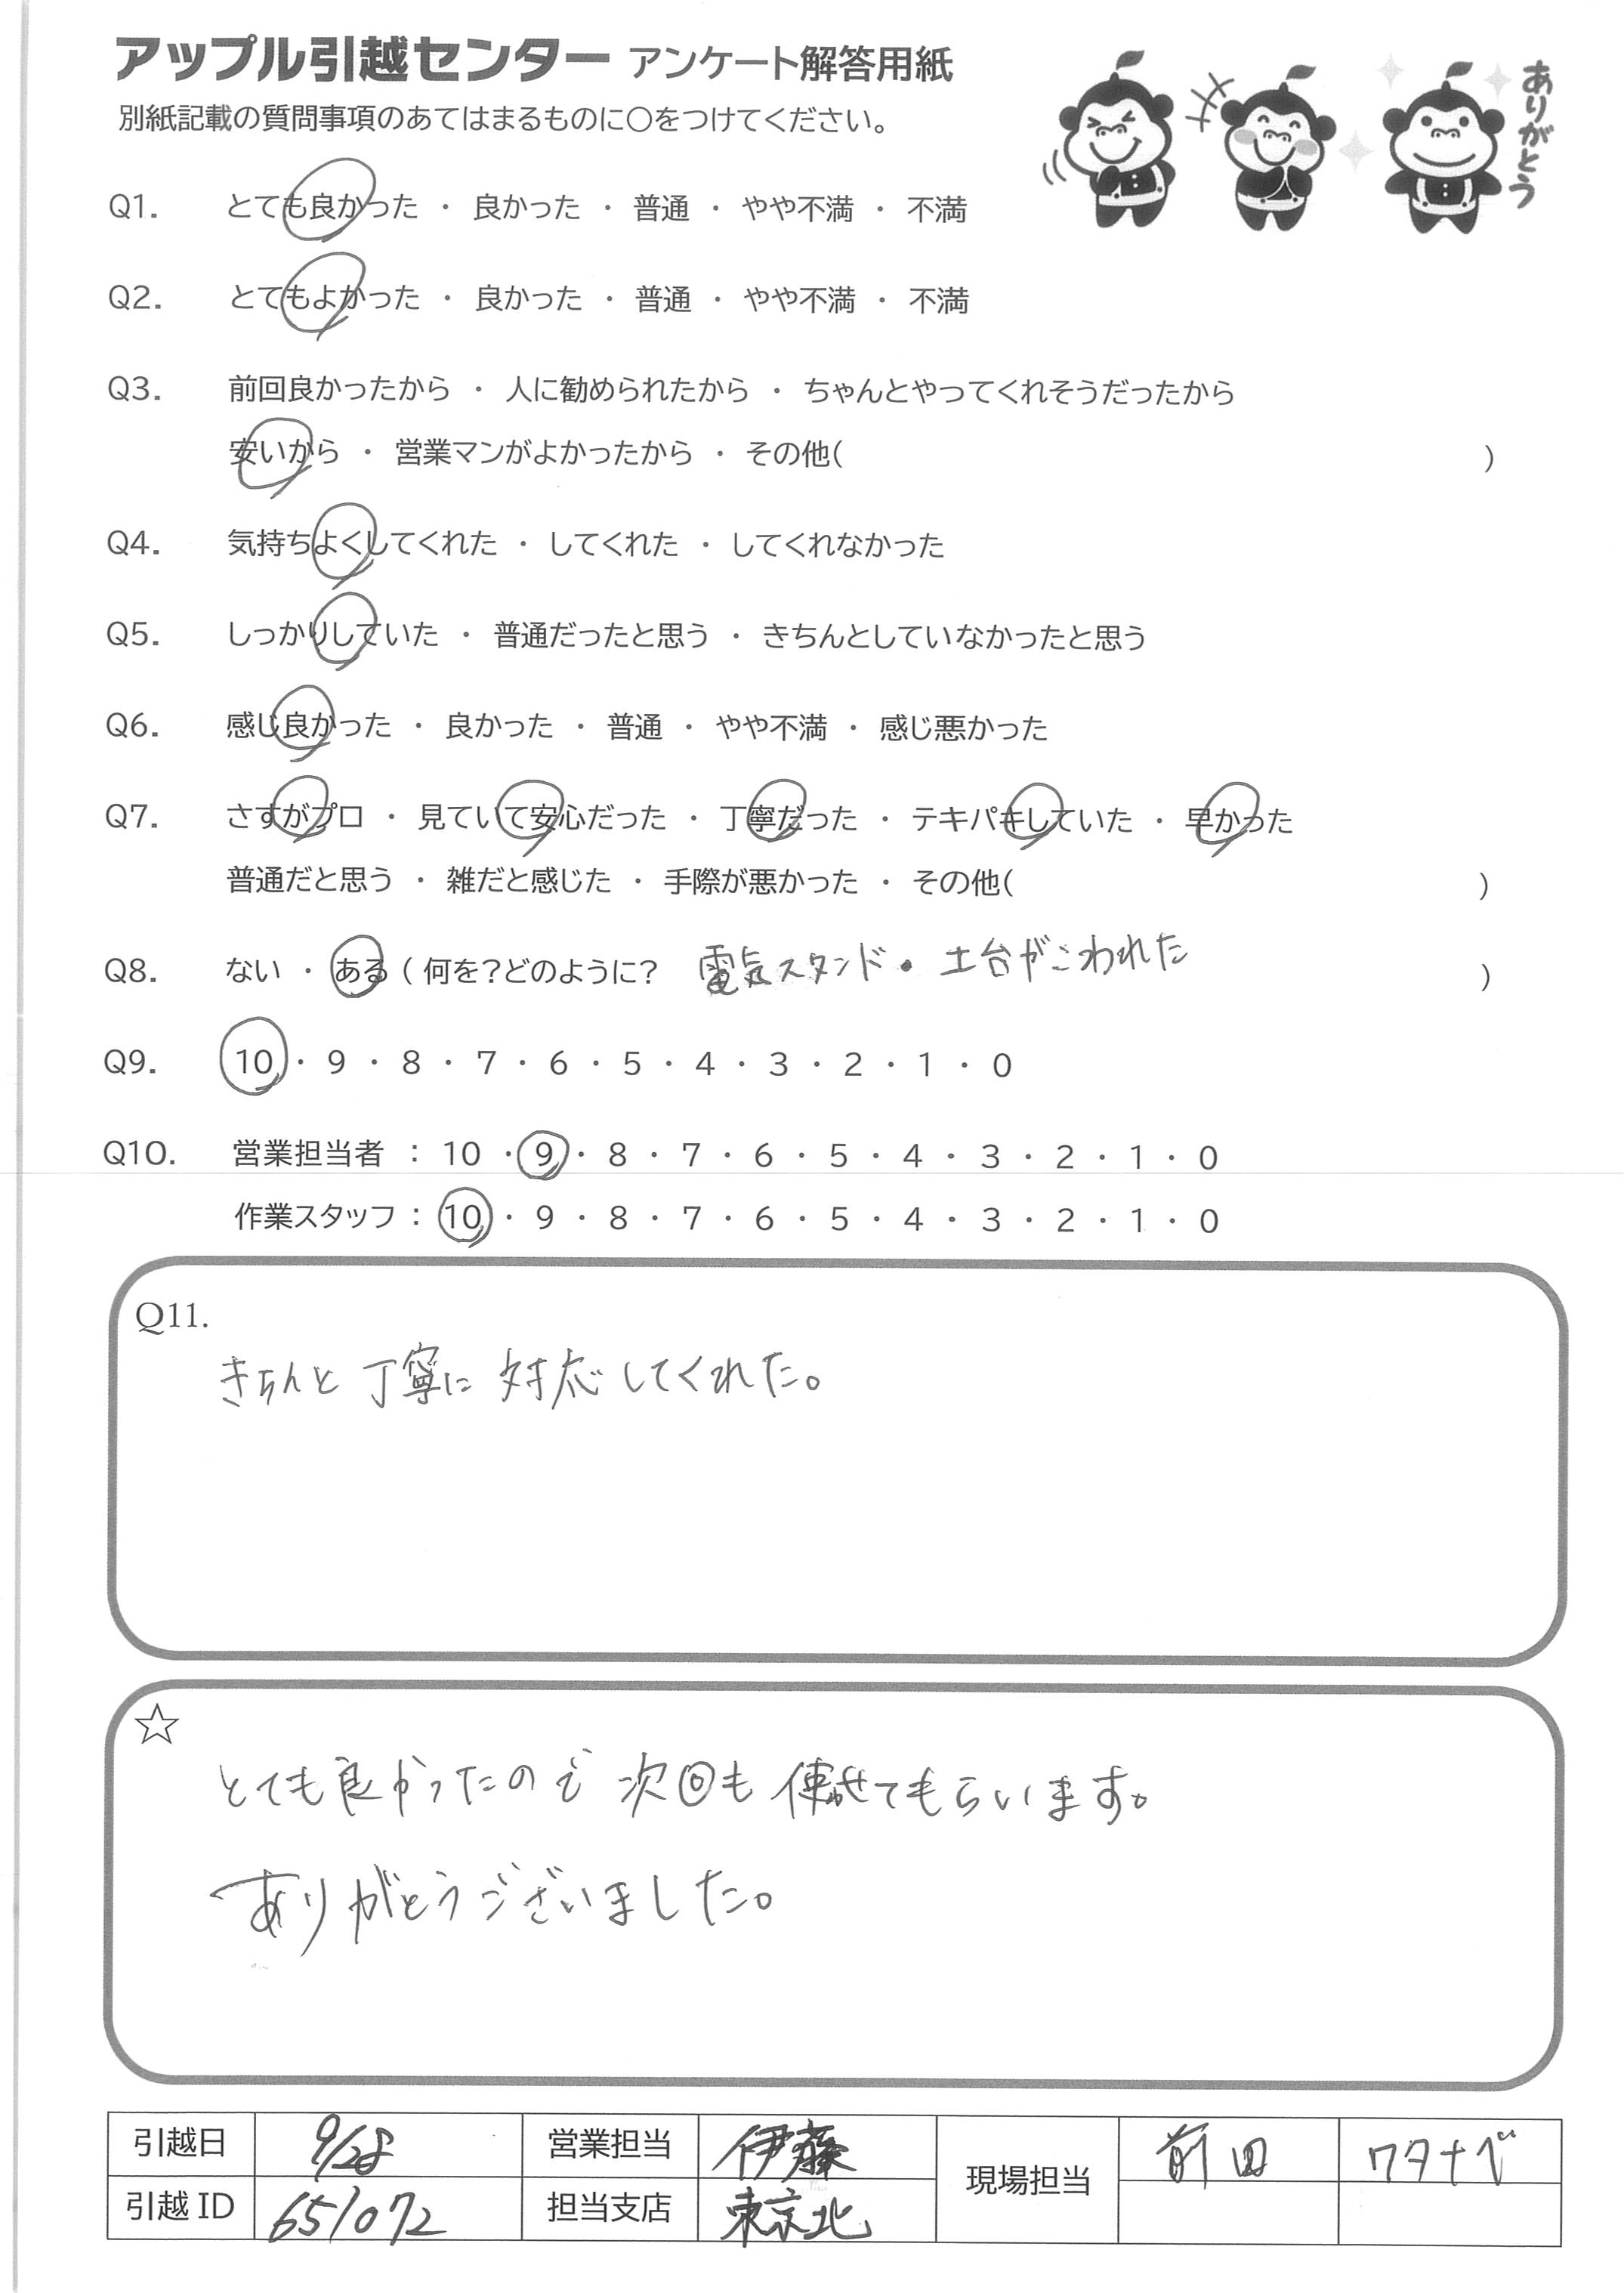 アップル引越センター アンケート解答用紙
別紙記載の質問事項のあてはまるものに〇をつけてください。
ありがとう
Q1. とても良かった ・ 良かった ・ 普通 ・ やや不満 ・ 不満
Q2. とてもよかった ・ 良かった ・ 普通 ・ やや不満 ・ 不満
Q3. 前回良かったから ・ 人に勧められたから ・ ちゃんとやってくれそうだったから
安いから ・ 営業マンがよかったから ・ その他( )
Q4. 気持ちよくしてくれた ・ してくれた ・ してくれなかった
Q5. しっかりしていた ・ 普通だったと思う ・ きちんとしていなかったと思う
Q6. 感じ良かった ・ 良かった ・ 普通 ・ やや不満 ・ 感じ悪かった
Q7. さすがプロ ・ 見ていて安心だった ・ 丁寧だった ・ テキパキしていた ・ 早かった
普通だと思う ・ 雑だと感じた ・ 手際が悪かった ・ その他( )
Q8. ない ・ ある ( 何を?どのように? 電気スタンド・土台がこわれた )
Q9. 10 ・ 9 ・ 8 ・ 7 ・ 6 ・ 5 ・ 4 ・ 3 ・ 2 ・ 1 ・ 0
Q10. 営業担当者 : 10 ・ 9 ・ 8 ・ 7 ・ 6 ・ 5 ・ 4 ・ 3 ・ 2 ・ 1 ・ 0
作業スタッフ : 10 ・ 9 ・ 8 ・ 7 ・ 6 ・ 5 ・ 4 ・ 3 ・ 2 ・ 1 ・ 0
Q11.
きちんと丁寧に対応してくれた。
☆
とても良かったので次回も使せてもらいます。
ありがとうございました。
引越日 9/28 営業担当 伊藤 現場担当 前田 ワタナベ
引越ID 651072 担当支店 東京北